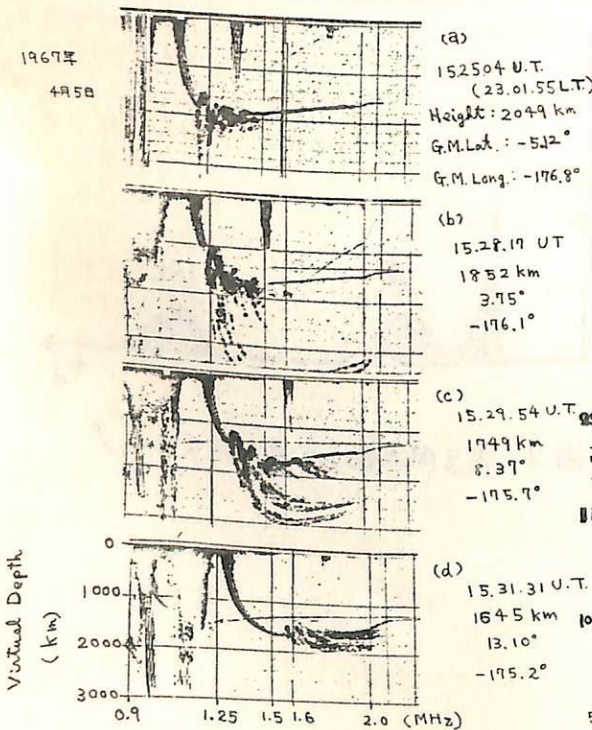 1967年
4月5日
(a)
15.2504 U.T.
(23.01.55 L.T.)
Height: 2049 km
G.M.Lat.: -5.12°
G.M.Long.: -176.8°
(b)
15.28.17 UT
1852 km
3.75°
-176.1°
(c)
15.29.54 U.T.
1749 km
8.37°
-175.7°
(d)
15.31.31 U.T.
1645 km
13.10°
-175.2°
Virtual Depth
(km)
0
1000
2000
3000
0.9 1.25 1.5 1.6 2.0 (MHz)